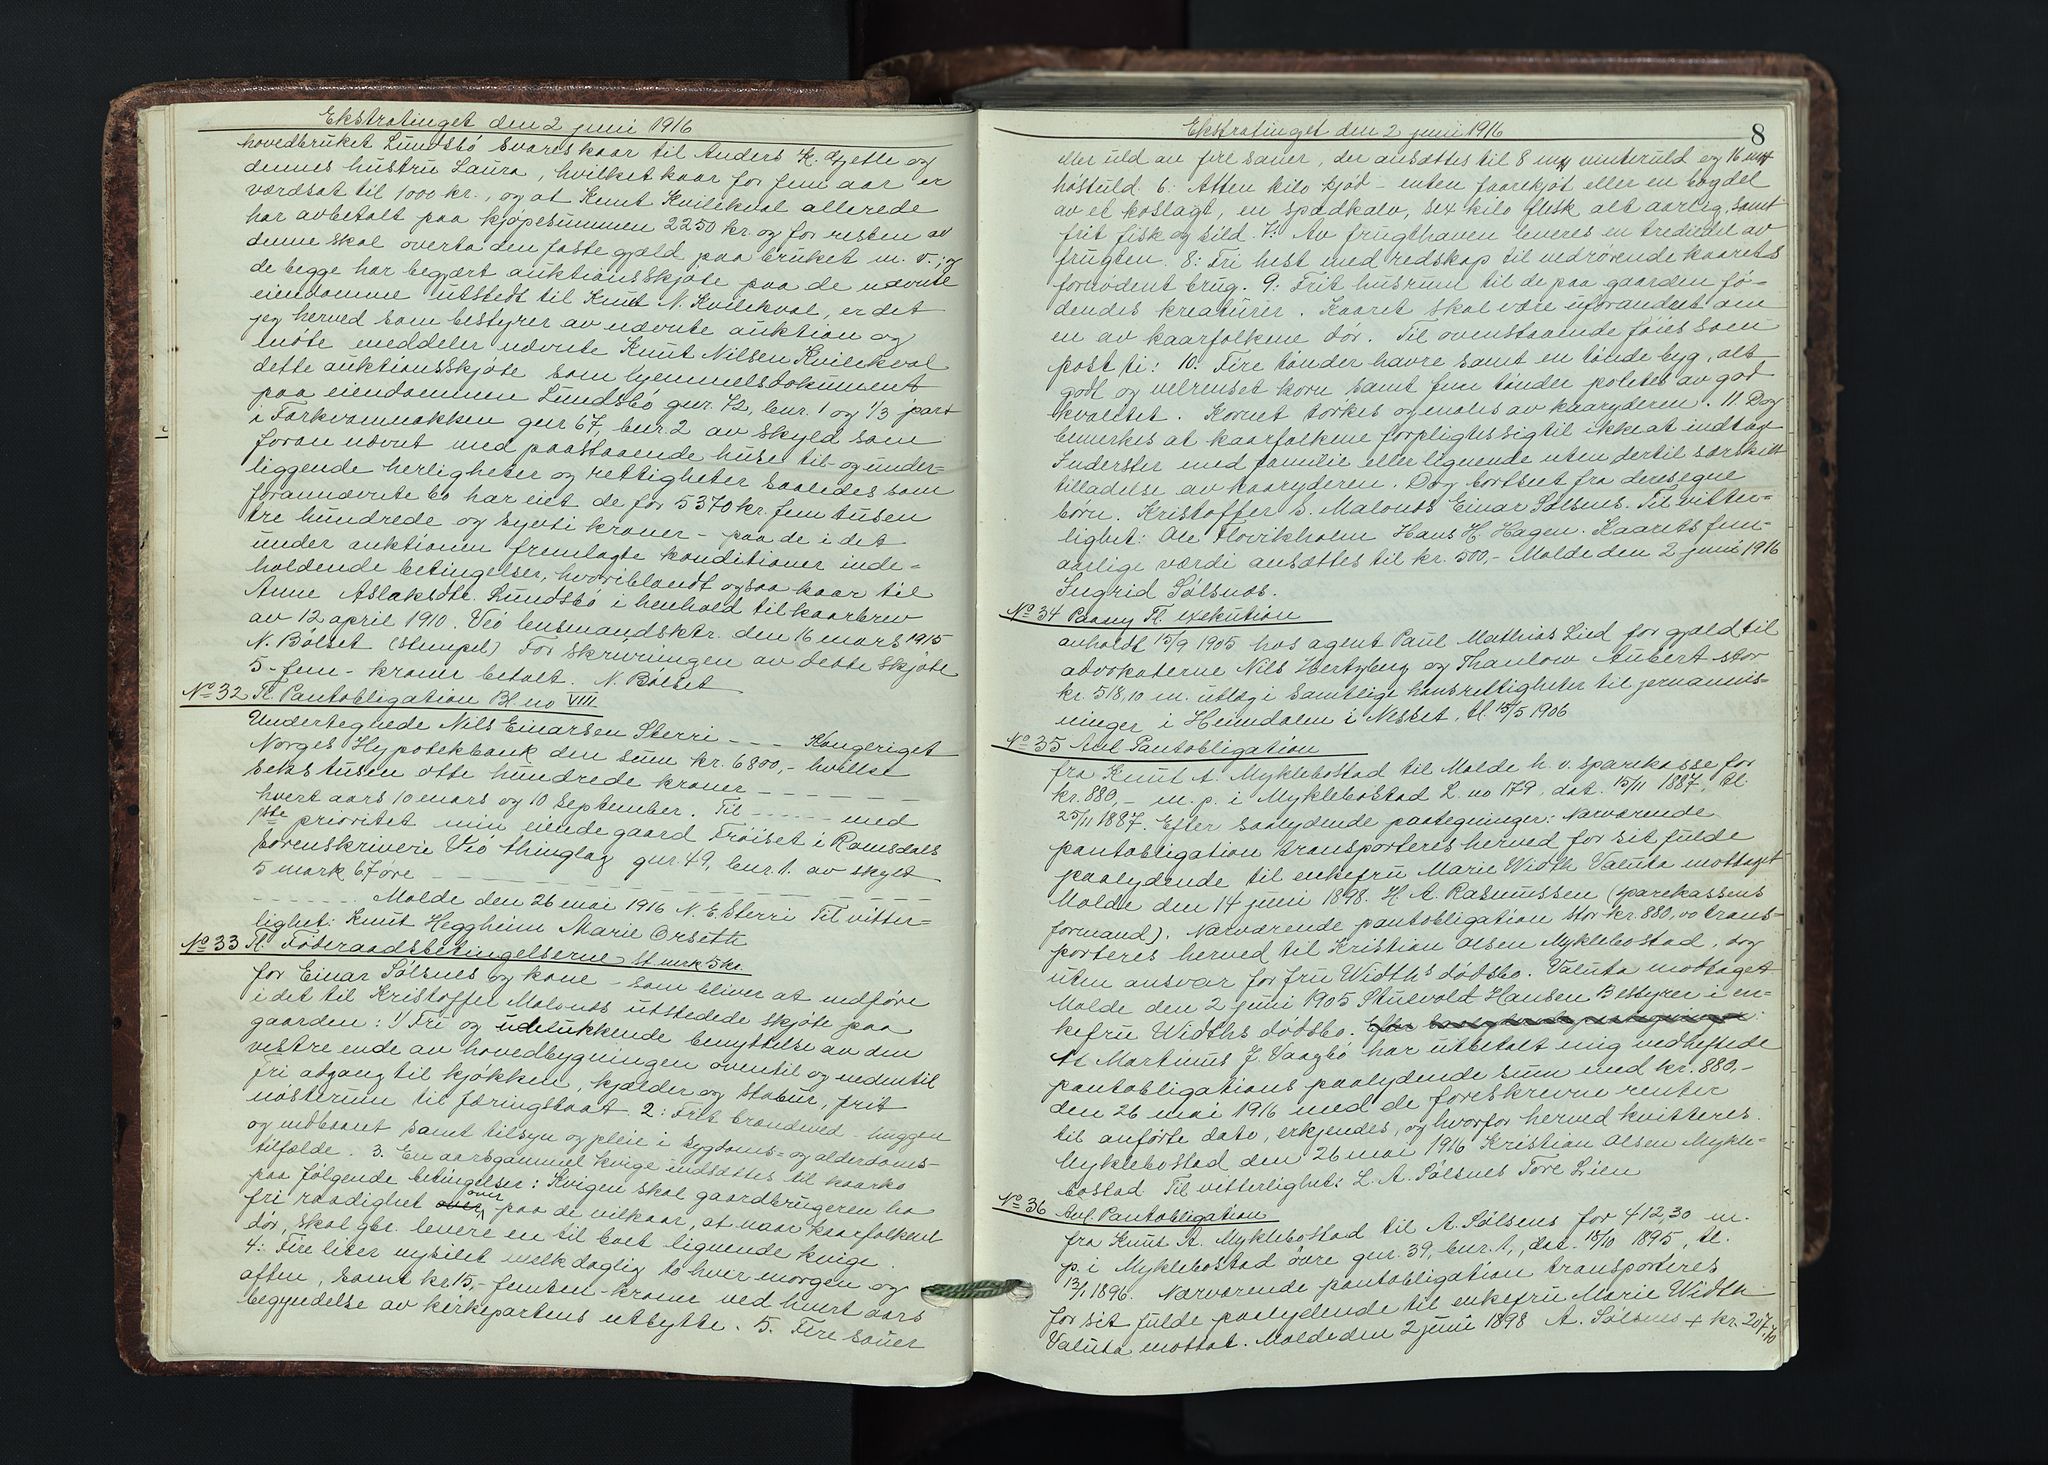 Ekstratinget den 2 juni 1916
hovedbruket Lundsbö svares kaar til Anders K. Gjette og
dennes hustru Laura, hvilket kaar for fem aar er
værdsat til 1000 kr., og at Knut Kvilekval allerede
har avbetalt paa kjøpesummen 2250 kr. og for resten av
denne skal overta den faste gjæld paa bruket m. v.; og
de begge har begjært auktionsskjøte paa de nævnte
eiendomme utstedt til Knut N. Kvilekval, er det
jeg herved som bestyrer av nævnte auktion og
meddeler nævnte Knut Nilsen Kvilekval
dette auktionsskjøte som hjemmelsdokument
paa eiendommen Lundsbö gnr. 72, bnr. 1 og 1/3 part
i Torkvamnakken gnr 67, bnr. 2 av skyld som
foran nævnt med paastaaende huse til- og under-
liggende herligheter og rettigheter saaledes som
forannævnte bo har eiet de for 5370 kr. fem tusen
tre hundrede og sytti kroner – paa de i det
under auktionen fremlagte konditioner inde-
holdende betingelser, hvoriblandt ogsaa kaar til
Anne Aslaksdtr. Lundsbö i henhold til kaarbrev
av 12 april 1910. Veö lensmandsktr. den 16 mars 1915
N. Bölset (stempel) For skrivningen av dette skjøte
5 – fem – kroner betalt. N. Bölset
No 32 Tl. Pantobligation Bl. no VIII
Undertegnede Nils Einarsen Sterri – – – Kongeriget
Norges Hypotekbank den sum kr. 6800,- hvilket
sekstusen otte hundrede kroner – – – – – – –
hvert aars 10 mars og 10 September. Til – – – – – med
1ste prioritet min eiende gaard Tröiset i Romsdals
sorenskriveri Veö thinglag gnr. 49, bnr. 1. av skyld
5 mark 67 øre – – – – – – – – – – – – – –
– – – – – – Molde den 26 mai 1916 N. E. Sterri Til vitter-
lighet: Knut Heggheim Marie Orseth
No 33 Tl. Föderaadsbetingelserne st. merk. 5 kr.
for Einar Sølsnes og kone – som bliver at indføre
i det til Kristoffer Malonæs utstedede skjøte paa
gaarden: 1) Fri og udelukkende benyttelse av den
vestre ende av hovedbygningen oventil og nedentil
fri adgang til kjøkken, kjælder og stabur, frit
nøsterum til færingsbaat. 2: Frit brændeved huggen
og indbaaret samt tilsyn og pleie i sygdoms- og alderdoms-
tilfælde. 3. En aarsgammel kvige indsættes til kaarko
paa følgende betingelser: Kvigen skal gaardbrugeren ha
fri raadighet over paa de vilkaar, at naar kaarfolkene
dør, skal gbr. levere en til boet lignende kvige.
4: Fire liter nysilet melk daglig to hver morgen og
aften, samt kr 15,- femten – kroner ved hvert aars
begyndelse av kirkepartens utbytte. 5. Fire sauer
Ekstratinget den 2 juni 1916
8
eller uld av fire sauer, der ansættes til 8 mrk vinteruld og 16 mrk
høstuld. 6: Atten kilo kjød – enten faarekjøt eller en bogdel
av et koslagt, en spædkalv, sex kilo flesk alt aarlig, samt
frit fisk og sild. 7: Av frugthaven leveres en trediedel av
frugten. 8: Fri hest med redskap til vedrørende kaarets
fornødent brug. 9: Frit husrum til de paa gaarden fø-
dendes kreaturer. Kaaret skal være uforandret om
en av kaarfolkene dör. Til ovenstaaende føies som
post ti: 10. Fire tønder havre samt en tønde byg, alt
godt og velrenset korn samt fem tønder poteter av god
kvalitet. Kornet tørkes og males av kaaryderen. 11 Dog
bemerkes at kaarfolkene forpligter sig til ikke at indta
Inderster med familie eller lignende uten dertil særskilt
tilladelse av kaaryderen. Dog bortset fra deres egne
børn. Kristoffer S. Malonæs Einar Sølsnes. Til vitter-
lighet: Ole Hovikholm Hans H. Hagen. Kaarets fem-
aarlige værdi ansættes til kr. 500,- Molde den 2 juni 1916
Ingrid Sølsnæs.
No 34 Paany Tl. exekution
avholdt 15/9 1905 hos agent Paul Mathias Lied for gjæld til
advokaterne Nils Hertzberg og Thanlow Aubert stor
kr. 518,10 m. utlæg i samtlige hans rettigheter til jernanvis-
ninger i Heimdalen i Nesset, tl. 15/5 1906
No 35 Avl. Pantobligation
fra Knut A. Myklebostad til Molde h. v. sparekasse for
kr. 880,- m. p. i Myklebostad L. no 179, dat. 15/11 1887, tl.
25/11 1887. Efter saalydende paategninger: Nærværende
pantobligation transporteres herved for sit fulde
paalydende til enkefru Marie Width Valuta mottaget
Molde den 14 juni 1898. H. A. Rasmussen (sparekassens
formand). Nærværende pantobligation stor kr. 880,00 trans-
porteres herved til Kristian Olsen Myklebostad, dog
uten ansvar for fru Widths dødsbo. Valuta mottaget
Molde den 2 juni 1905 Stuevold Hansen Bestyrer i en-
kefru Widths dødsbo.
At Martinus J. Vaagbö har utbetalt mig vedheftede
pantobligations paalydende sum med kr. 880,-
den 26 mai 1916 med de foreskrevne renter
til anførte dato, erkjendes, og hvorfor herved kvitteres.
Myklebostad den 26 mai 1916 Kristian Olsen Mykle-
bostad Til vitterlighet: L. A. Sølsnes Tore Lien
No 36 Avl. Pantobligation
fra Knut A. Myklebostad til A. Sølsens for 412,30 m.
p. i Myklebostad övre gnr. 39, bnr. 1., dat. 18/10 1895, tl.
13/1 1896. Nærværende pantobligation transporteres
for sit fulde paalydende til enkefru Marie Width
Valuta mottat. Molde den 2 juni 1898 A. Sølsnes + kr. 207,70